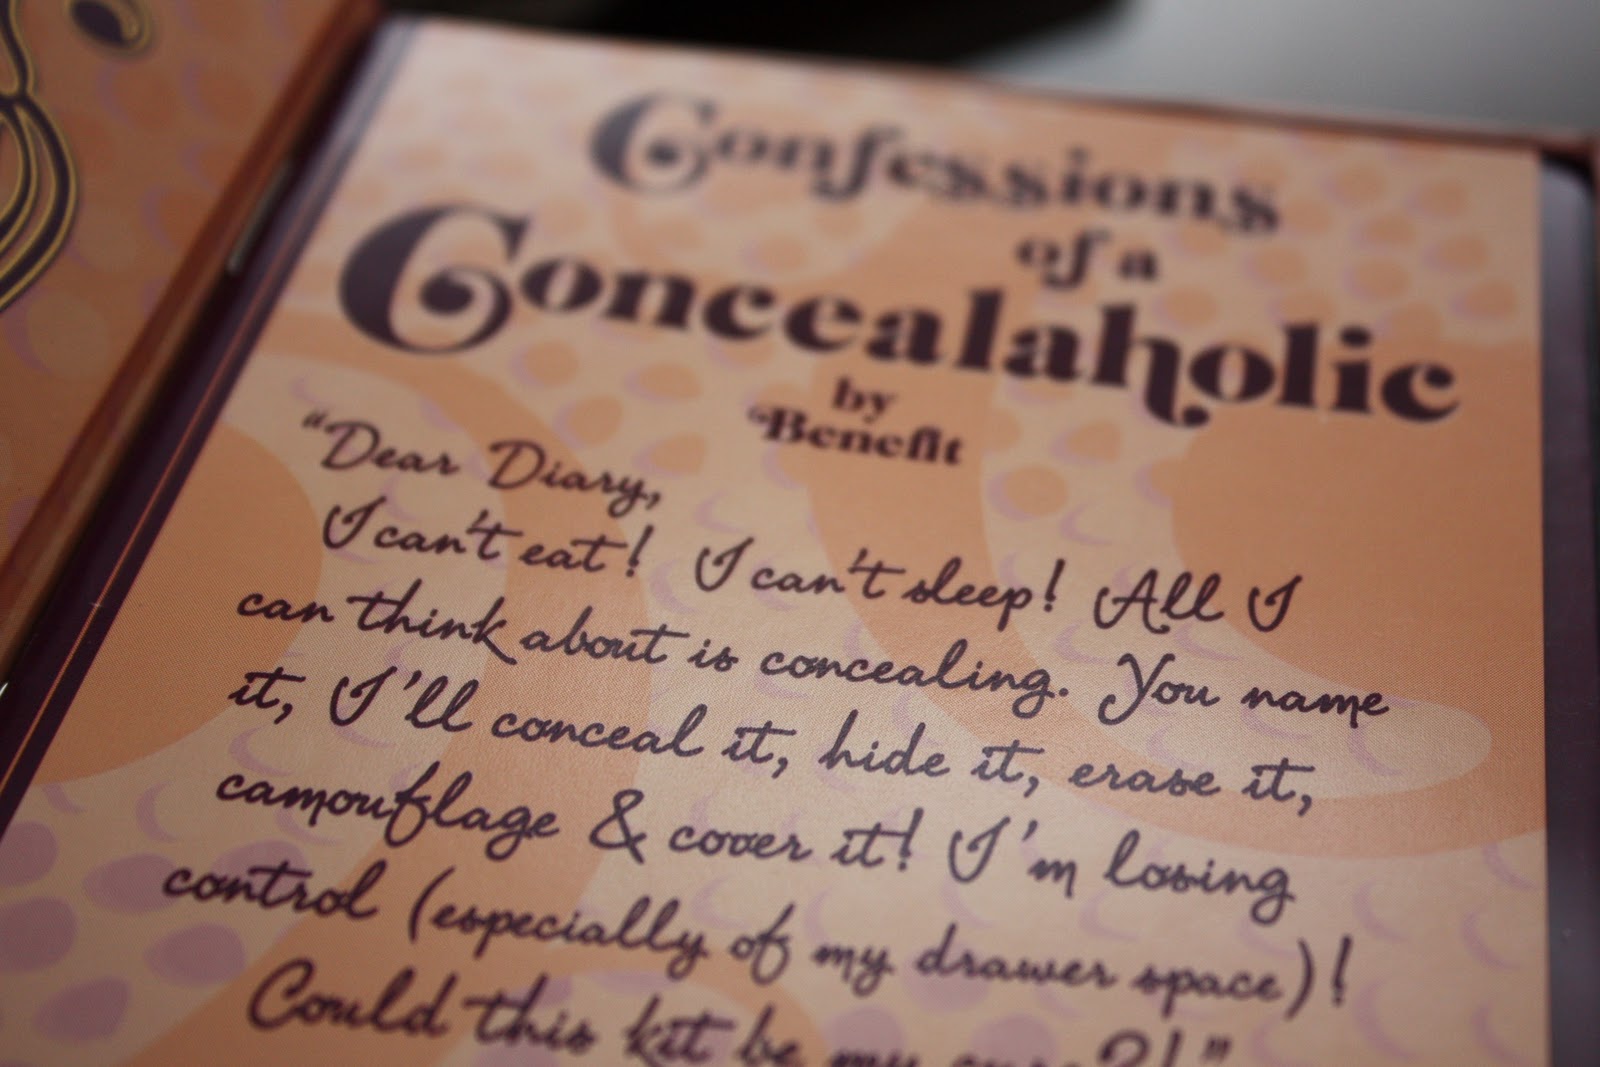 Confessions
of a
Concealaholic
by
Benefit
"Dear Diary,
I can't eat! I can't sleep! All I
can think about is concealing. You name
it, I'll conceal it, hide it, erase it,
camouflage & cover it! I'm losing
control (especially of my drawer space)!
Could this kit be my cure?!"